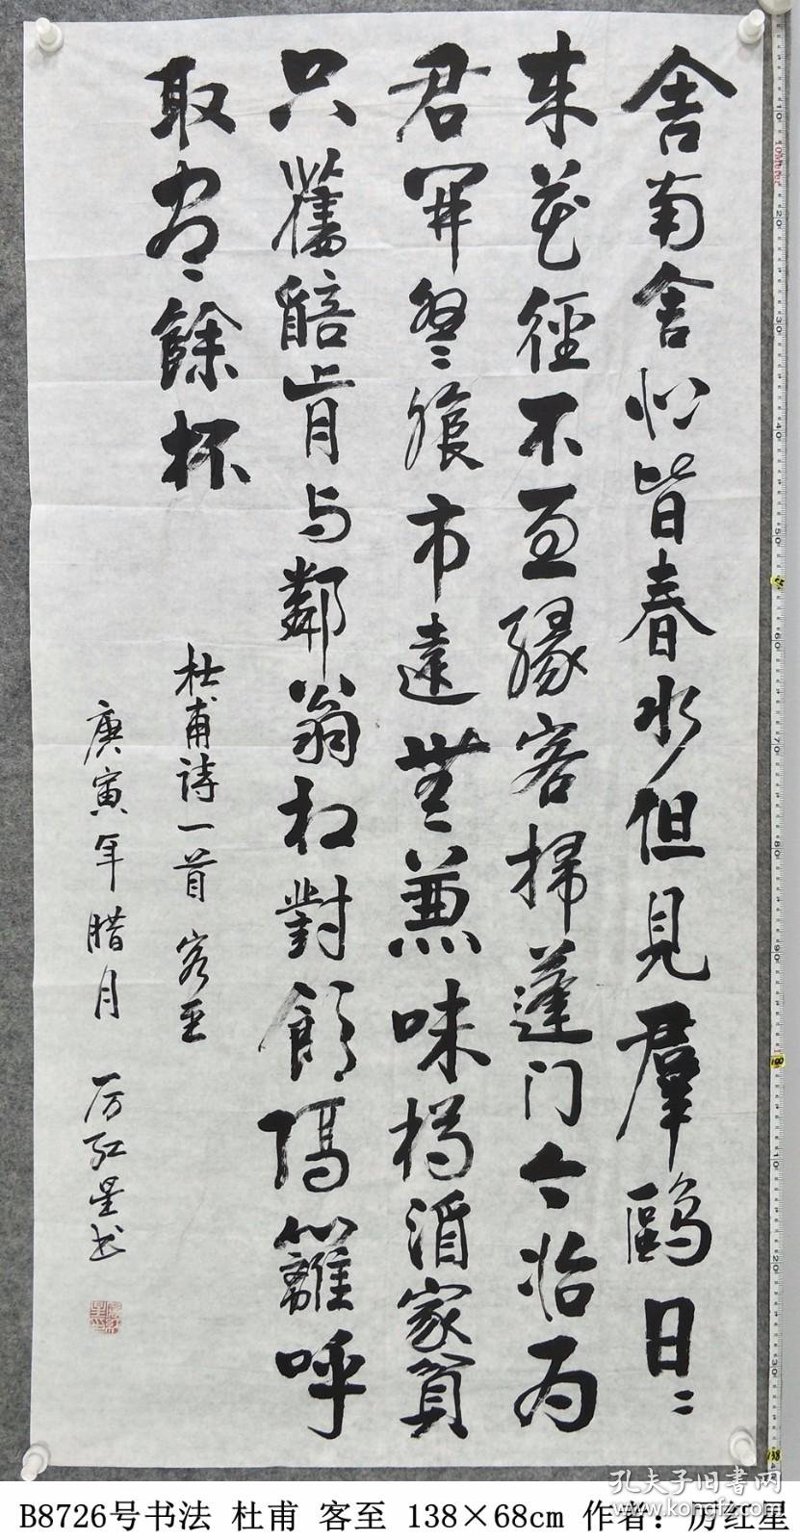 舍南舍北皆春水但見羣鷗日〻
来花徑不曾緣客掃蓬门今始为
君開盤飧市遠無兼味樽酒家貧
只舊醅肯与鄰翁相對飲隔籬呼
取盡餘杯
杜甫詩一首 客至
庚寅年腊月 厉红星书
孔夫子旧书网
www.kongfz.com
B8726号书法 杜甫 客至 138×68cm 作者：厉红星